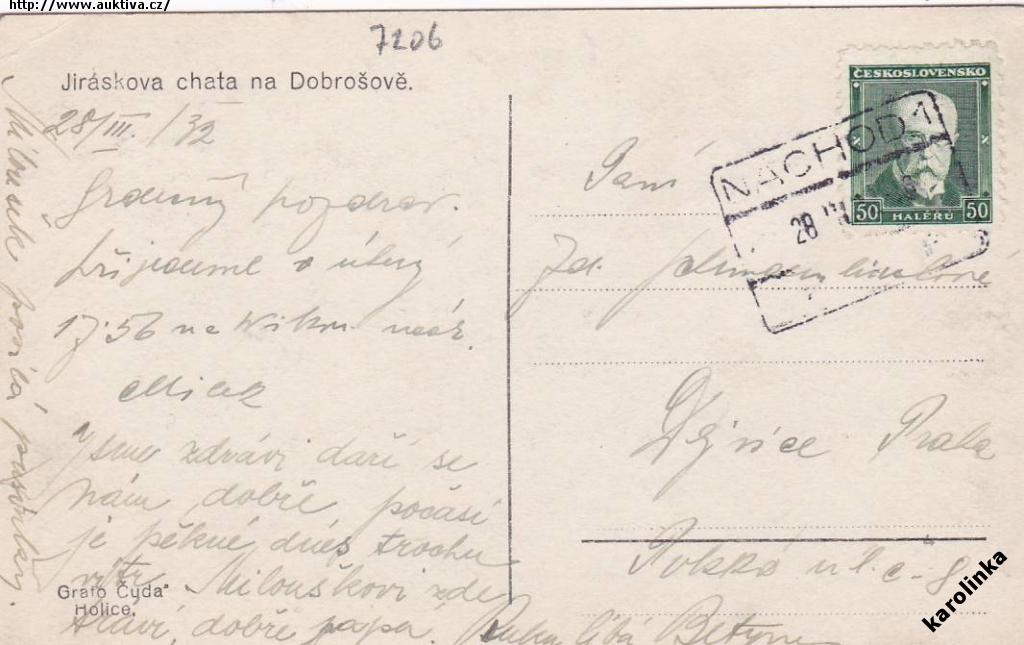 http://www.auktiva.cz/
7206
Jiráskova chata na Dobrošově.
28/III. /32
Srdečný pozdrav.
přijedeme v úterý
17:56 na Wilson. nádr.
Milek
Jsme zdrávi daří se
nám dobře počasí
je pěkné dnes trochu
vítr. Milouškovi zde
tráví, dobře papá. Ruku líbá
Grafo Čuda
Holice.
ČESKOSLOVENSKO
50 HALÉŘŮ 50
NÁCHOD 1
28 III
Paní
Dejvice Praha
ul. č. 8
karolinka